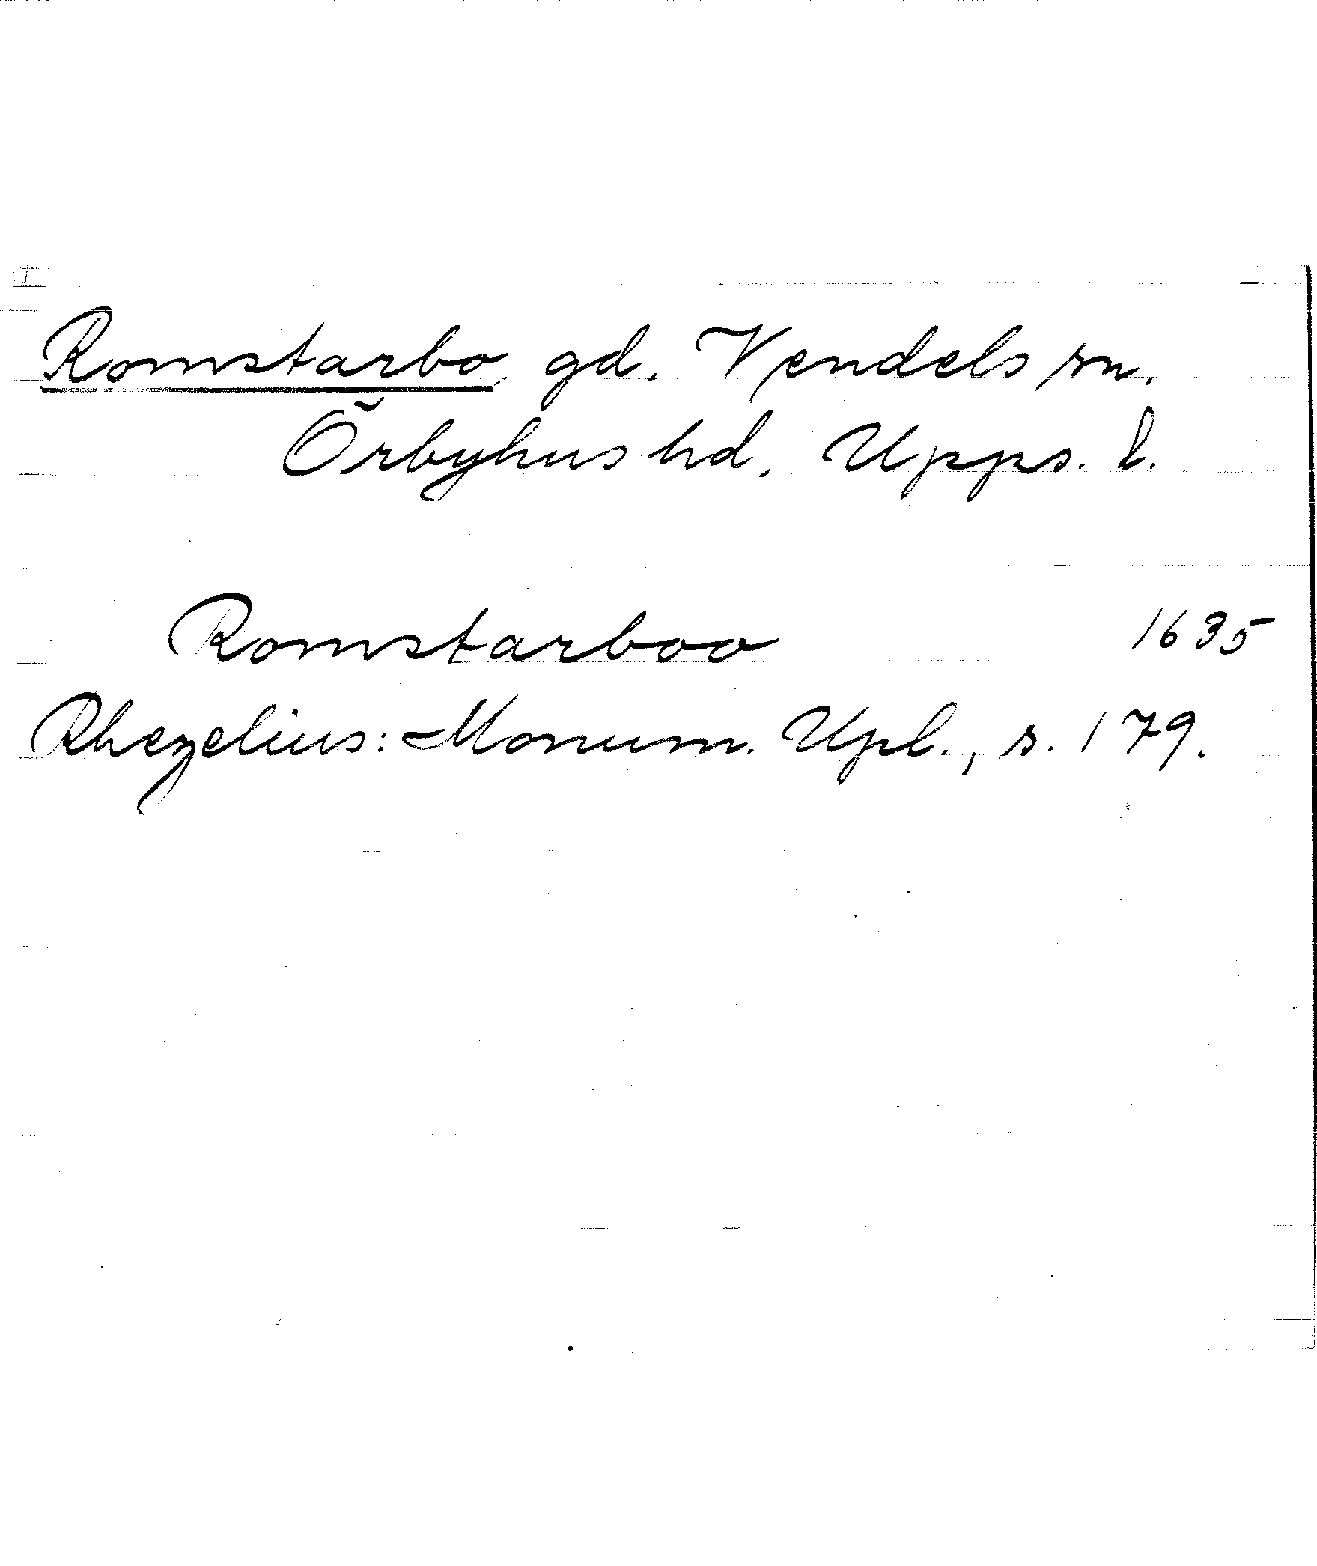 Romstarbo gd. Vendels sn.
Örbyhus hd. Upps. l.
Romstarboo 1635
Rhezelius: Monum. Upl., s. 179.